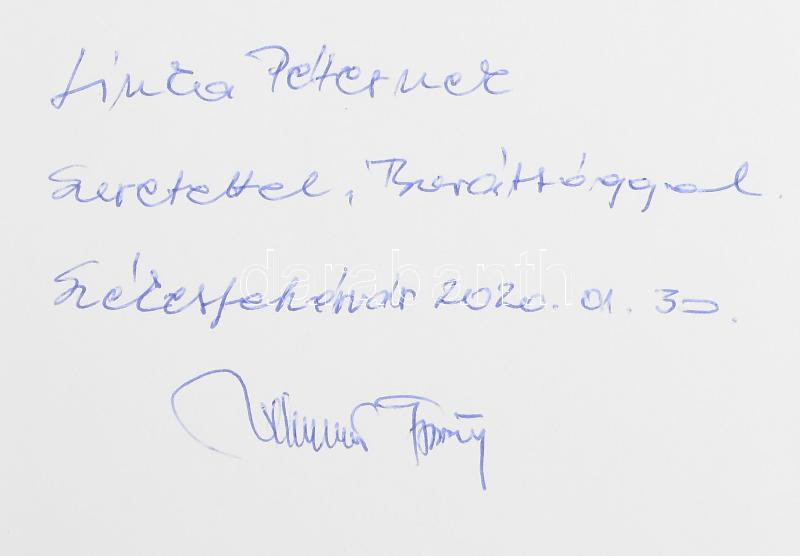 Simka Péternek
Szeretettel, Barátsággal.
Székesfehérvár 2020. 01. 30.
darabanth